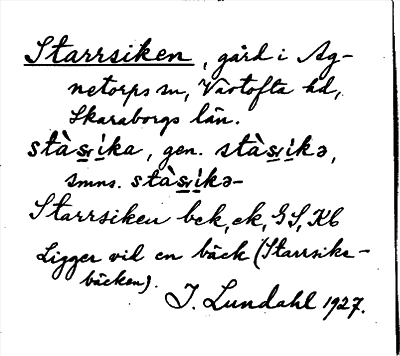 Starrsiken, gård i Ag-
netorps sn, Vartofta hd,
Skaraborgs län.
stàsıka, gen. stàsıkə,
smns. stàsıkə-
Starrsiken bek, ek, GS, Kb
Ligger vid en bäck (Starrsiks-
bäcken).
I. Lundahl 1927.